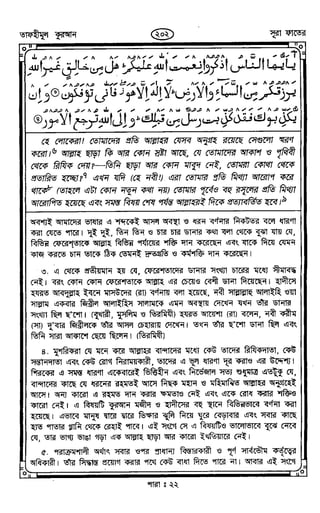 তাফহীমুল কুরআন
২০২
সূরা ফাতের
يٰٓاَيُّهَا النَّاسُ اذْكُرُوْا نِعْمَتَ اللّٰهِ عَلَيْكُمْ ؕ هَلْ مِنْ خَالِقٍ غَيْرُ اللّٰهِ
يَرْزُقُكُمْ مِّنَ السَّمَآءِ وَالْاَرْضِ ؕ لَآ اِلٰهَ اِلَّا هُوَ ۖ فَاَنّٰى تُؤْفَكُوْنَ ۝ وَاِنْ
يُّكَذِّبُوْكَ فَقَدْ كُذِّبَتْ رُسُلٌ مِّنْ قَبْلِكَ ؕ وَاِلَى اللّٰهِ تُرْجَعُ الْاُمُوْرُ ۝
হে লোকেরা! তোমাদের প্রতি আল্লাহর যেসব অনুগ্রহ রয়েছে সেগুলো স্মরণ
করো। আল্লাহ ছাড়া কি আর কোন স্রষ্টা আছে, যে তোমাদের আকাশ ও পৃথিবী
থেকে রিযিক দেয়?—তিনি ছাড়া আর কোন মাবুদ নেই, তোমরা কোথা থেকে
প্রতারিত হচ্ছো? এখন যদি (হে নবী!) এরা তোমার প্রতি মিথ্যা আরোপ করে
থাকে (তাহলে এটা কোন নতুন কথা নয়) তোমার পূর্বেও বহু রসূলের প্রতি মিথ্যা
আরোপিত হয়েছে এবং সমস্ত বিষয় শেষ পর্যন্ত আল্লাহরই দিকে প্রত্যাবর্তিত হবে।
অবশ্যই আমাদের ভাষার এ শব্দকেই আসল অবস্থা ও ধরন বর্ণনার নিকটতর বলে ধারণা
করা যেতে পারে। দুই দুই, তিন তিন ও চার চার ডানার কথা বলা থেকে বুঝা যায় যে,
বিভিন্ন ফেরেশতাকে আল্লাহ বিভিন্ন পর্যায়ের শক্তি দান করেছেন এবং যাকে দিয়ে যেমন
কাজ করতে চান তাকে ঠিক তেমনই দ্রুতগতি ও কর্মশক্তি দান করেছেন।
৩. এ থেকে প্রতীয়মান হয় যে, ফেরেশতাদের ডানার সংখ্যা চারের মধ্যে সীমাবদ্ধ
নেই। বরং কোন কোন ফেরেশতাকে আল্লাহ এর চেয়েও বেশী ডানা দিয়েছেন। হাদীসে
হযরত আবদুল্লাহ ইবনে মাসউদের (রা) বর্ণনা বলা হয়েছে, নবী সাল্লাল্লাহু আলাইহি ওয়া
সাল্লাম একবার জিব্রীল আলাইহিস সালামকে এমন অবস্থায় দেখেন যখন তাঁর ডানার
সংখ্যা ছিল ছ'শো। (বুখারী, মুসলিম ও তিরমিযী) হযরত আয়েশা (রা) বলেন, নবী করীম
(সা) দু'বার জিব্রীলকে তাঁর আসল চেহারায় দেখেন। তখন তাঁর ছ'শো ডানা ছিল এবং
তিনি সারা আকাশে ছেয়ে ছিলেন। (তিরমিযী)
৪. মুশরিকরা যে মনে করে আল্লাহর বান্দাদের মধ্যে কেউ তাদের রিযিকদাতা, কেউ
সন্তানদাতা এবং কেউ রোগ নিরাময়কারী, তাদের এ ভুল ধারণা দূর করাও এর উদ্দেশ্য।
শিরকের এ সমস্ত ধারণা একেবারেই ভিত্তিহীন এবং নির্ভেজাল সত্য শুধুমাত্র এতটুকু যে,
বান্দাদের কাছে যে ধরনের রহমতই আসে নিছক মহান ও মহিমান্বিত আল্লাহর অনুগ্রহেই
আসে। অন্য কারো এ রহমত দান করার ক্ষমতাও নেই এবং একে রোধ করার শক্তিও
কারো নেই। এ বিষয়টি কুরআন মজীদ ও হাদীসের বহু স্থানে বিভিন্নভাবে বর্ণনা করা
হয়েছে। এভাবে মানুষ দ্বারে দ্বারে ভিক্ষার ঝুলি নিয়ে ঘুরে বেড়াবার এবং সবার কাছে
হাত পাতার গ্লানি থেকে রেহাই পাবে। এই সংগে সে এ বিষয়টিও ভালোভাবে বুঝে নেবে
যে, তার ভাগ্য ভাঙা গড়া এক আল্লাহ ছাড়া আর কারো ইখতিয়ারে নেই।
৫. পরাক্রমশালী অর্থাৎ সবার ওপর প্রাধান্য বিস্তারকারী ও পূর্ণ সার্বভৌম কর্তৃত্বের
অধিকারী। তাঁর সিদ্ধান্ত প্রয়োগ করার পথে কেউ বাধা দিতে পারে না। আবার এই সংগে
পারা : ২২